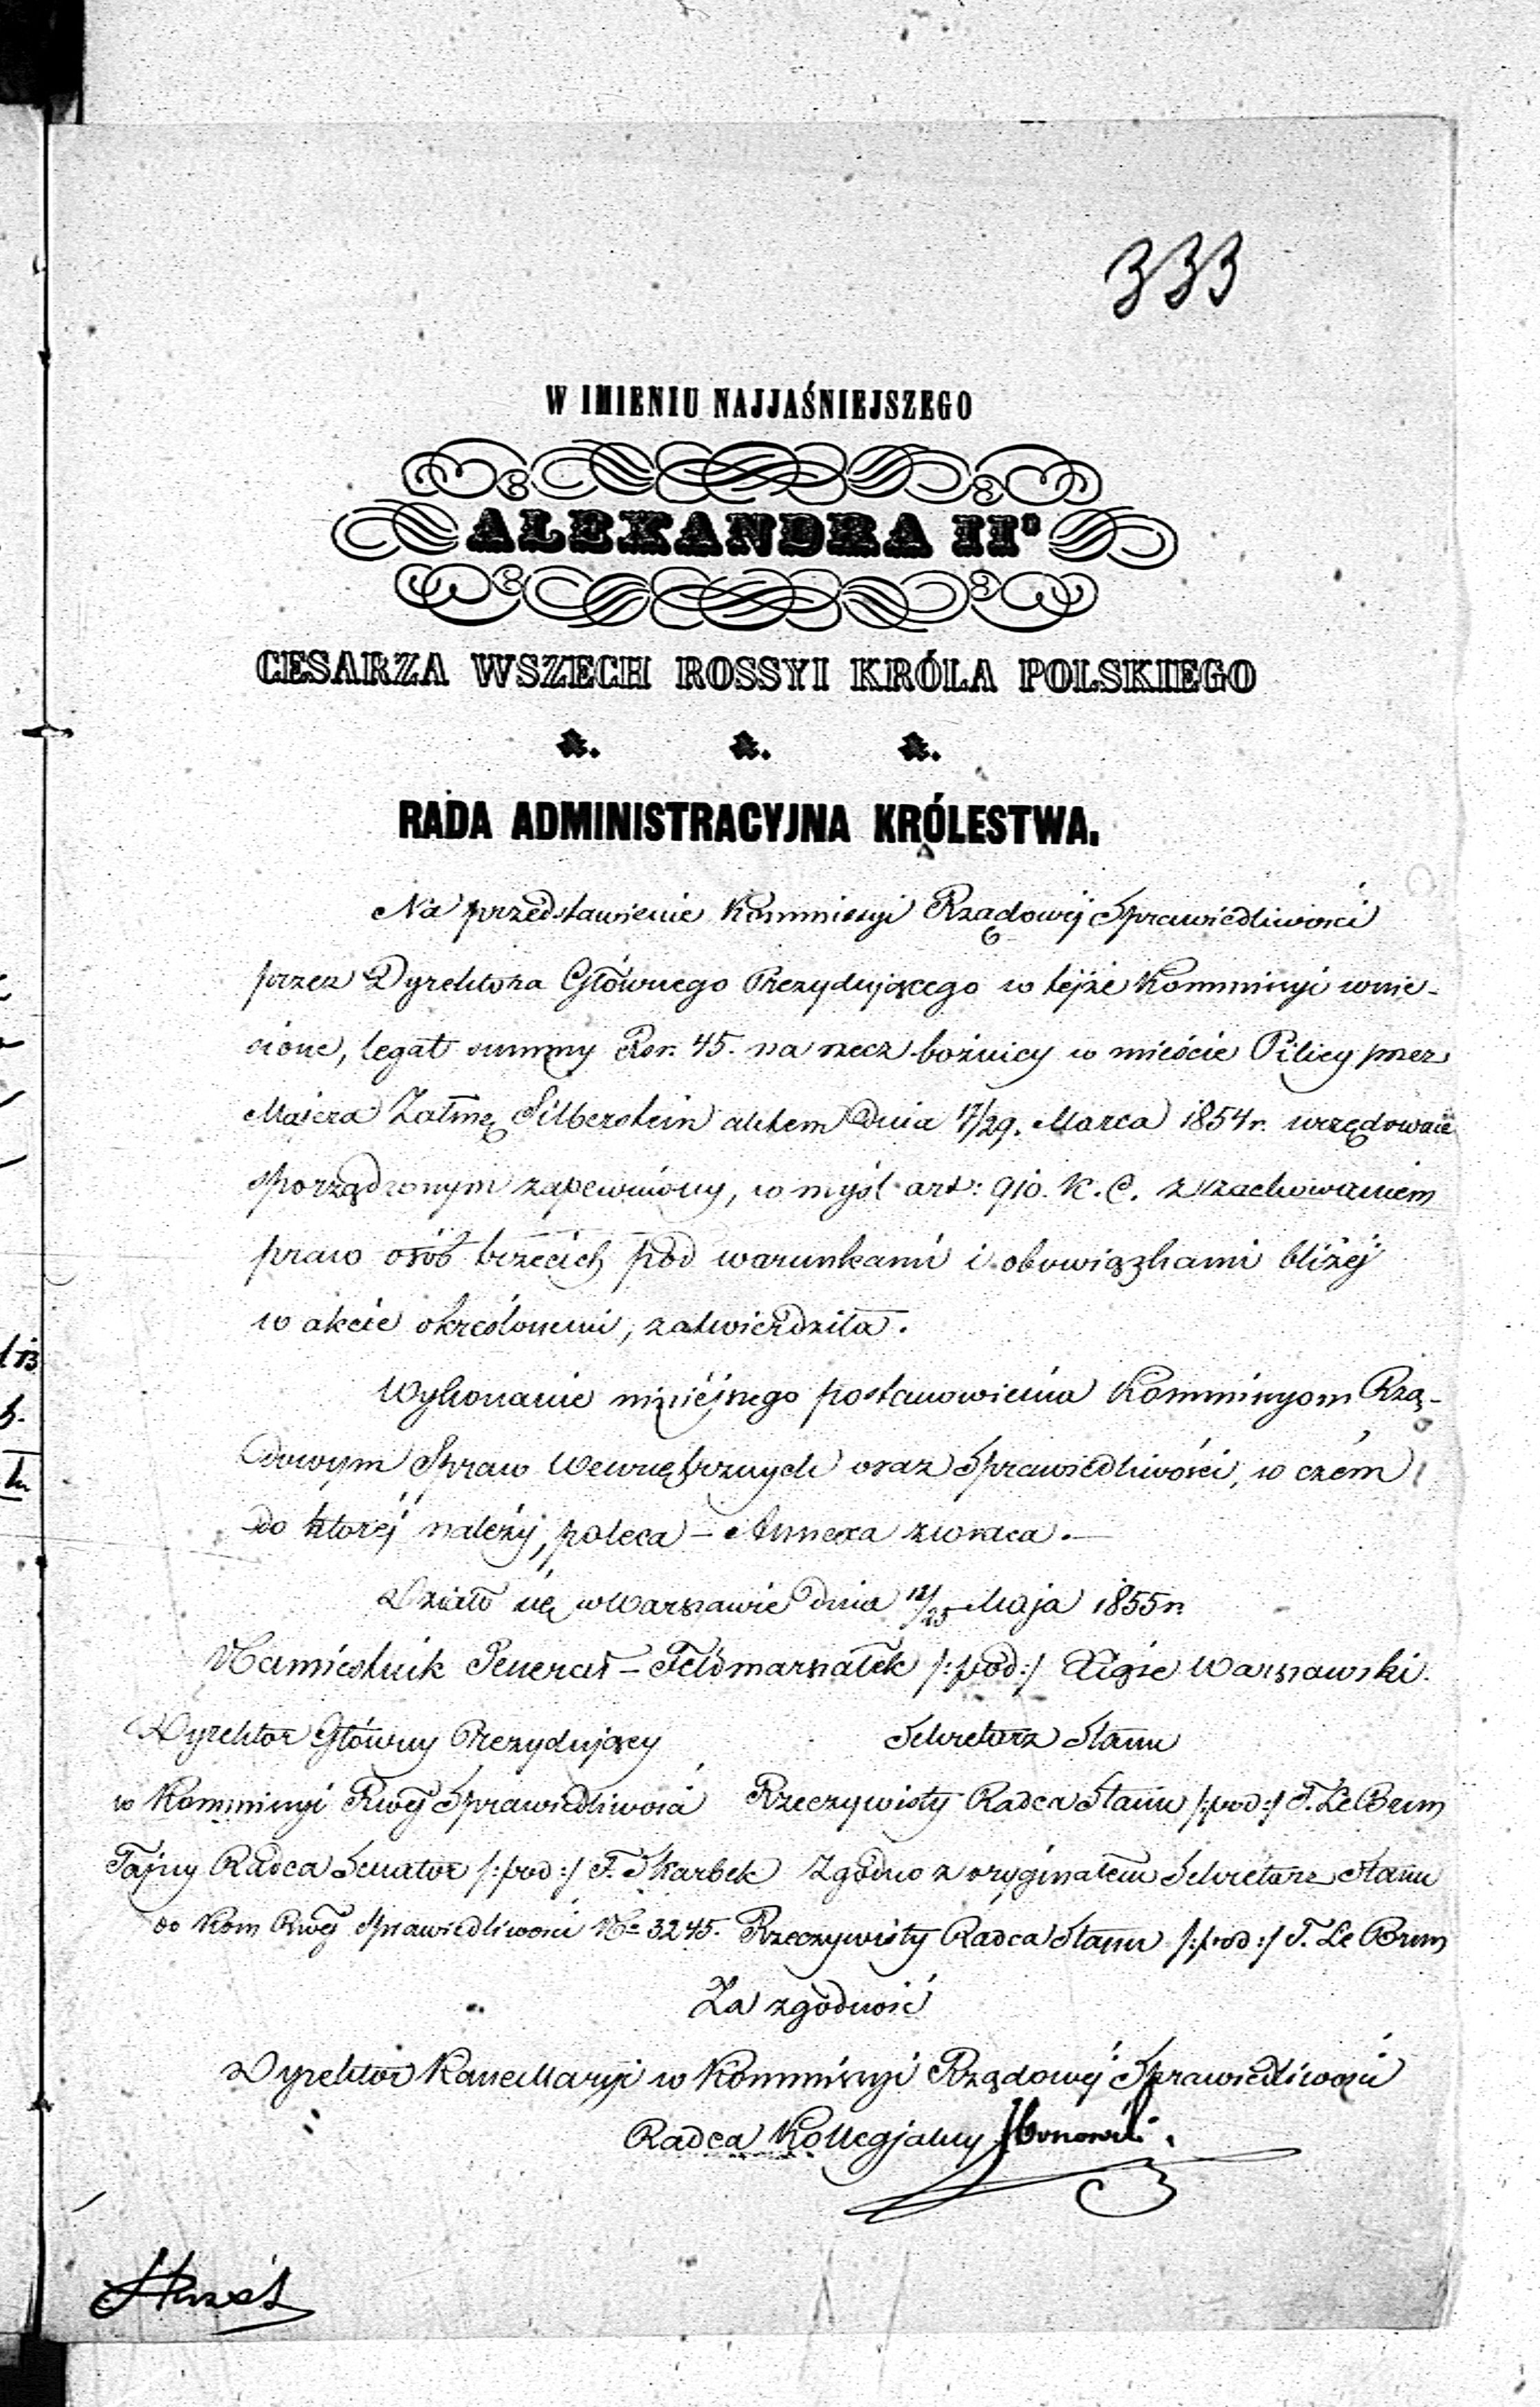 333
W IMIENIU NAJJAŚNIEJSZEGO
ALEXANDRA IIº
CESARZA WSZECH ROSSYI KRÓLA POLSKIEGO
&. &. &.
RADA ADMINISTRACYJNA KRÓLESTWA.
Na przedstawienie Kommissyi Rządowéj Sprawiedliwości
przez Dyrektora Głównego Prezydującego w tejże Kommissyi wnie-
sione, legat summy Rsr. 45. na rzecz bóżnicy w mieście Pilicy przez
Majera Załmę Silberstein aktem dnia 17/29. Marca 1854 r. urzędownie
sporządzonym zapewniony, w myśl art: 910. K. C. z zachowaniem
praw osób trzecich pod warunkami i obowiązkami bliżej
w akcie określonemi, zatwierdziła.
Wykonanie niniéjszego postanowienia Kommissyom Rzą-
dowym Spraw Wewnętrznych oraz Sprawiedliwości, w czém
do któréj należy, poleca – Annexa zwraca. –
Działo się w Warszawie dnia 12/25 Maja 1855 r.
Namiestnik Jenerał – Feldmarszałek /:pod:/ Xiąże Warszawski.
Dyrektor Główny Prezydujący Sekretarz Stanu
w Kommissyi Rwéj Sprawiedliwości Rzeczywisty Radca Stanu /:pod:/ T. Le Brun
Tajny Radca Senator /:pod:/ F. Skarbek Zgodno z oryginałem Sekretarz Stanu
do Kom Rwéj Sprawiedliwości Nº 3245. Rzeczywisty Radca Stanu /:pod:/ T. Le Brun
Za zgodność
Dyrektor Kancellaryi w Kommissyi Rządowéj Sprawiedliwości
Radca Kollegjalny